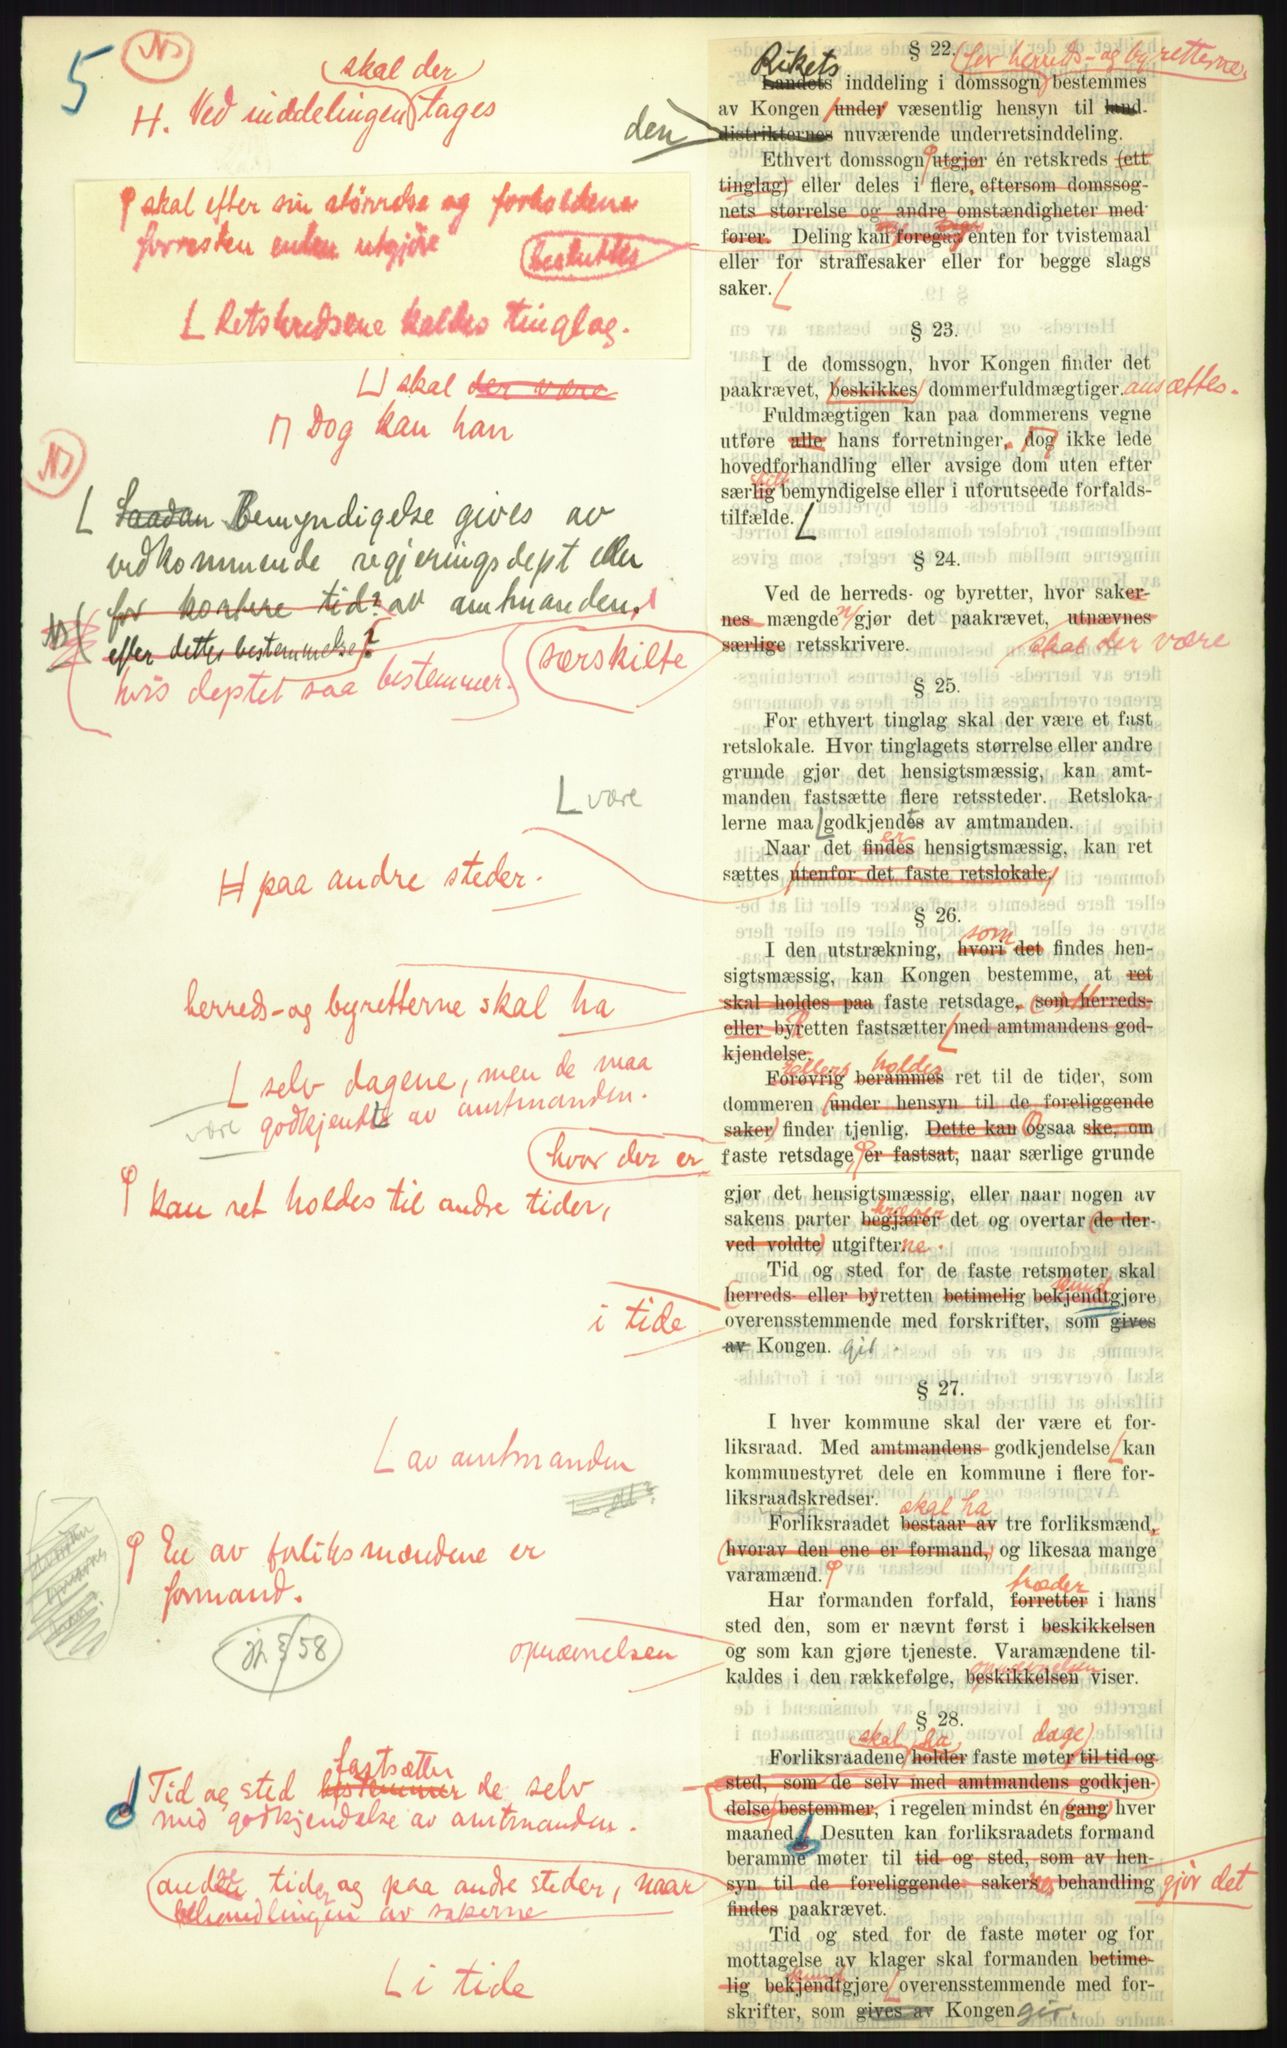 5
N
skal der
H. Ved inddelingen tages
den
φ skal efter sin størrelse og forholdene
forresten enten utgjøre
besluttes
L Retskredsene kaldes tinglag.
skal der være
Π Dog kan han
N
L Saadan Bemyndigelse gives av
vedkommende regjeringsdept eller
for kortere tid? av amtmanden,
efter dettes bestemmelse?
hvis deptet saa bestemmer.
særskilte
L være
H paa andre steder.
herreds- og byretterne skal ha
L selv dagene, men de maa
være godkjendte av amtmanden.
hvor der er
φ kan ret holdes til andre tider,
i tide
L av amtmanden
φ En av forliksmændene er
formand.
jfr § 58
opnævnelsen
fastsætter
Tid og sted bestemmer de selv
med godkjendelse av amtmanden.
andre tider og paa andre steder, naar
behandlingen av sakerne
L i tide
§ 22.
Rikets
for herreds- og byretterne
Landets inddeling i domssogn bestemmes
av Kongen under væsentlig hensyn til land-
distrikternes nuværende underretsinddeling.
Ethvert domssogn φ utgjør én retskreds (ett
tinglag) eller deles i flere, eftersom domssog-
nets størrelse og andre omstændigheter med-
fører. Deling kan foregaa enten for tvistemaal
eller for straffesaker eller for begge slags
saker. L
§ 23.
I de domssogn, hvor Kongen finder det
paakrævet, beskikkes dommerfuldmægtiger. ansættes.
Fuldmægtigen kan paa dommerens vegne
utføre alle hans forretninger, dog ikke lede
hovedforhandling eller avsige dom uten efter
særlig bemyndigelse eller i uforutseede forfalds-
tilfælde. L
§ 24.
Ved de herreds- og byretter, hvor saker-
nes mængde gjør det paakrævet, utnævnes
særlige retsskrivere. skal der være
§ 25.
For ethvert tinglag skal der være et fast
retslokale. Hvor tinglagets størrelse eller andre
grunde gjør det hensigtsmæssig, kan amt-
manden fastsætte flere retssteder. Retsloka-
lerne maa L godkjendes av amtmanden.
er
Naar det findes hensigtsmæssig, kan ret
sættes utenfor det faste retslokale.
§ 26.
som
I den utstrækning, hvori det findes hen-
sigtsmæssig, kan Kongen bestemme, at ret
skal holdes paa faste retsdage, som herreds-
eller byretten fastsætter L med amtmandens god-
kjendelse.
Ellers holdes
Forøvrig berammes ret til de tider, som
dommeren (under hensyn til de foreliggende
saker) finder tjenlig. Dette kan ogsaa ske, om
faste retsdage, φ er fastsat, naar særlige grunde
gjør det hensigtsmæssig, eller naar nogen av
kræver
sakens parter begjærer det og overtar (de der-
ved voldte) utgifterne.
Tid og sted for de faste retsmøter skal
kund
herreds- eller byretten betimelig bekjendtgjøre
overensstemmende med forskrifter, som gives
av Kongen. gir.
§ 27.
I hver kommune skal der være et for-
liksraad. Med amtmandens godkjendelse L kan
kommunestyret dele en kommune i flere for-
liksraadskredser.
skal ha
Forliksraadet bestaar av tre forliksmænd,
(hvorav den ene er formand,) og likesaa mange
varamænd. φ
træder
Har formanden forfald, forretter i hans
sted den, som er nævnt først i beskikkelsen
og som kan gjøre tjeneste. Varamændene til-
opnævnelsen
kaldes i den rækkefølge, beskikkelsen viser.
§ 28.
skal ha dage)
Forliksraadene holder faste møter til tid og
sted, som de selv med amtmandens godkjen-
delse bestemmer, i regelen mindst én (gang) hver
maaned. Desuten kan forliksraadets formand
beramme møter til tid og sted, som av hen-
syn til de foreliggende sakers behandling gjør det
findes paakrævet.
Tid og sted for de faste møter og for
mottagelse av klager skal formanden betime-
kund
lig bekjendtgjøre L overensstemmende med for-
skrifter, som gives av Kongen gir.